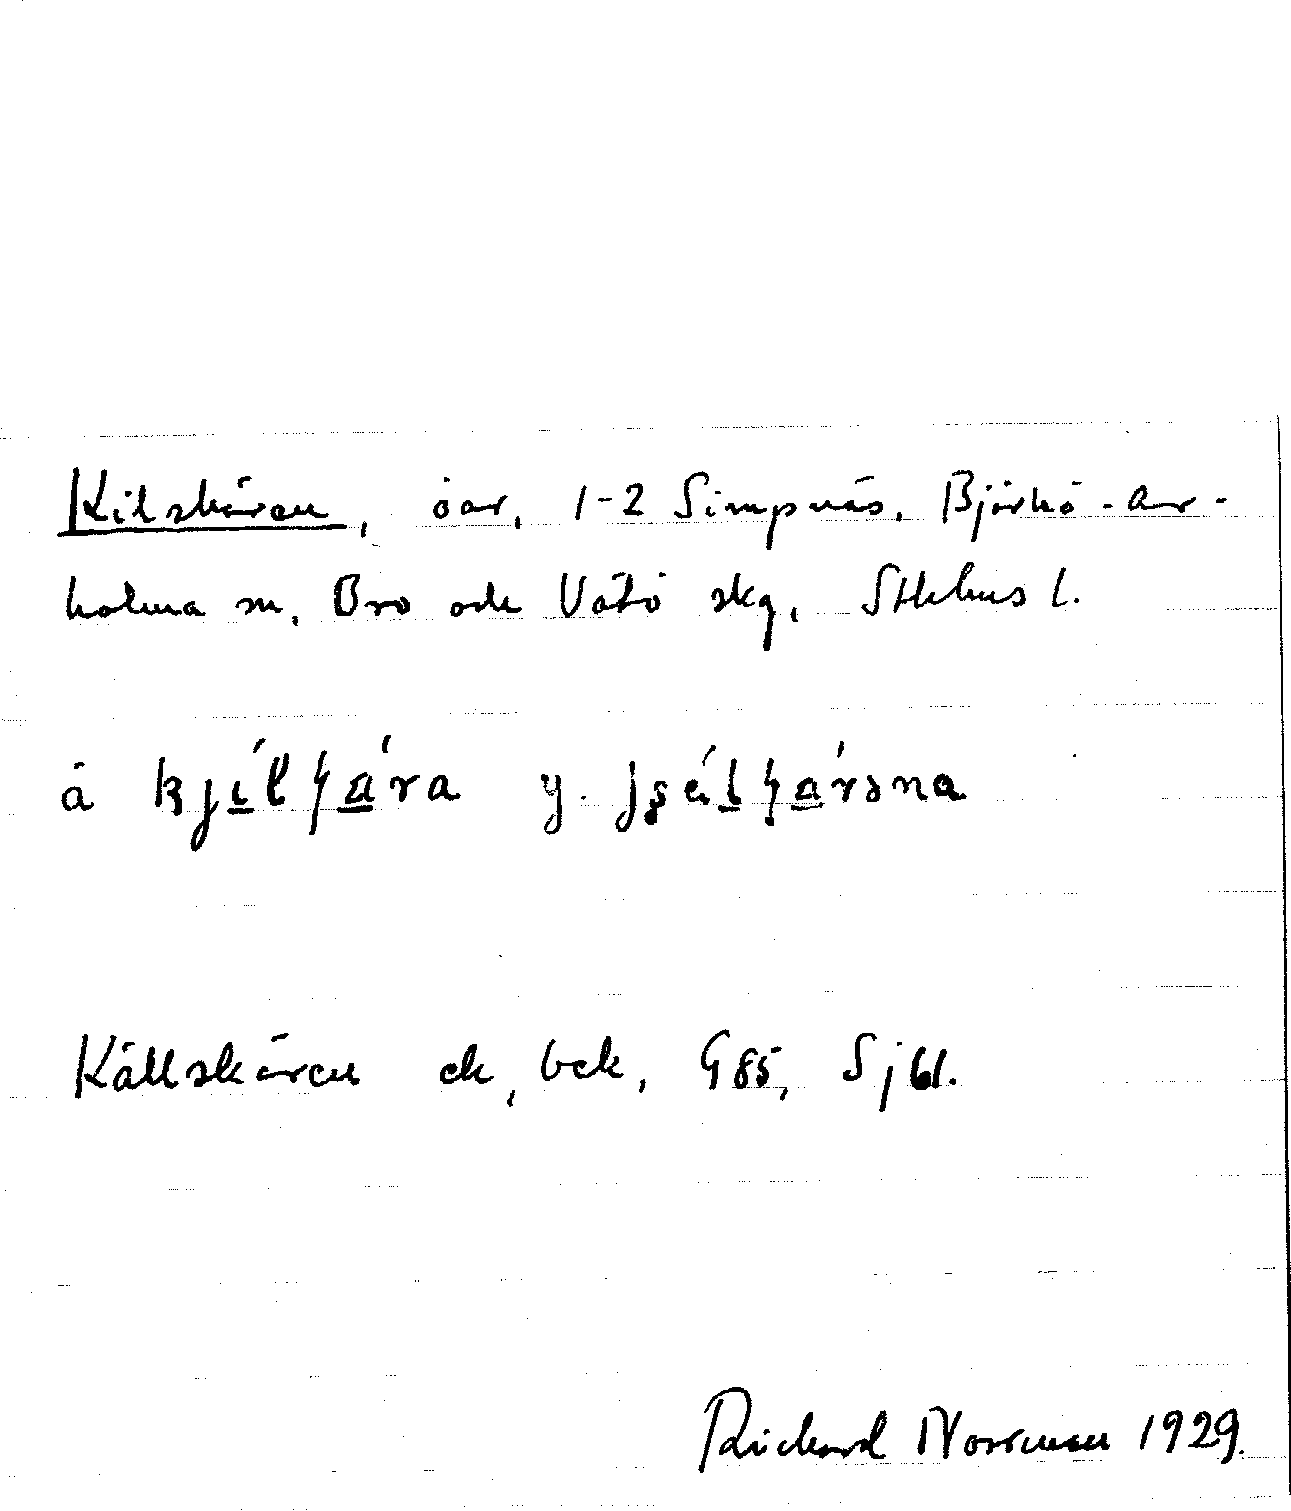 Kilskären, öar, 1-2 Simpnäs, Björkö-Ar-
holma sn, Bro och Vätö skg, Sthlms l.
å y.
Källskären ek, bek, G85, Sjkl.
Richard Norrman 1929.